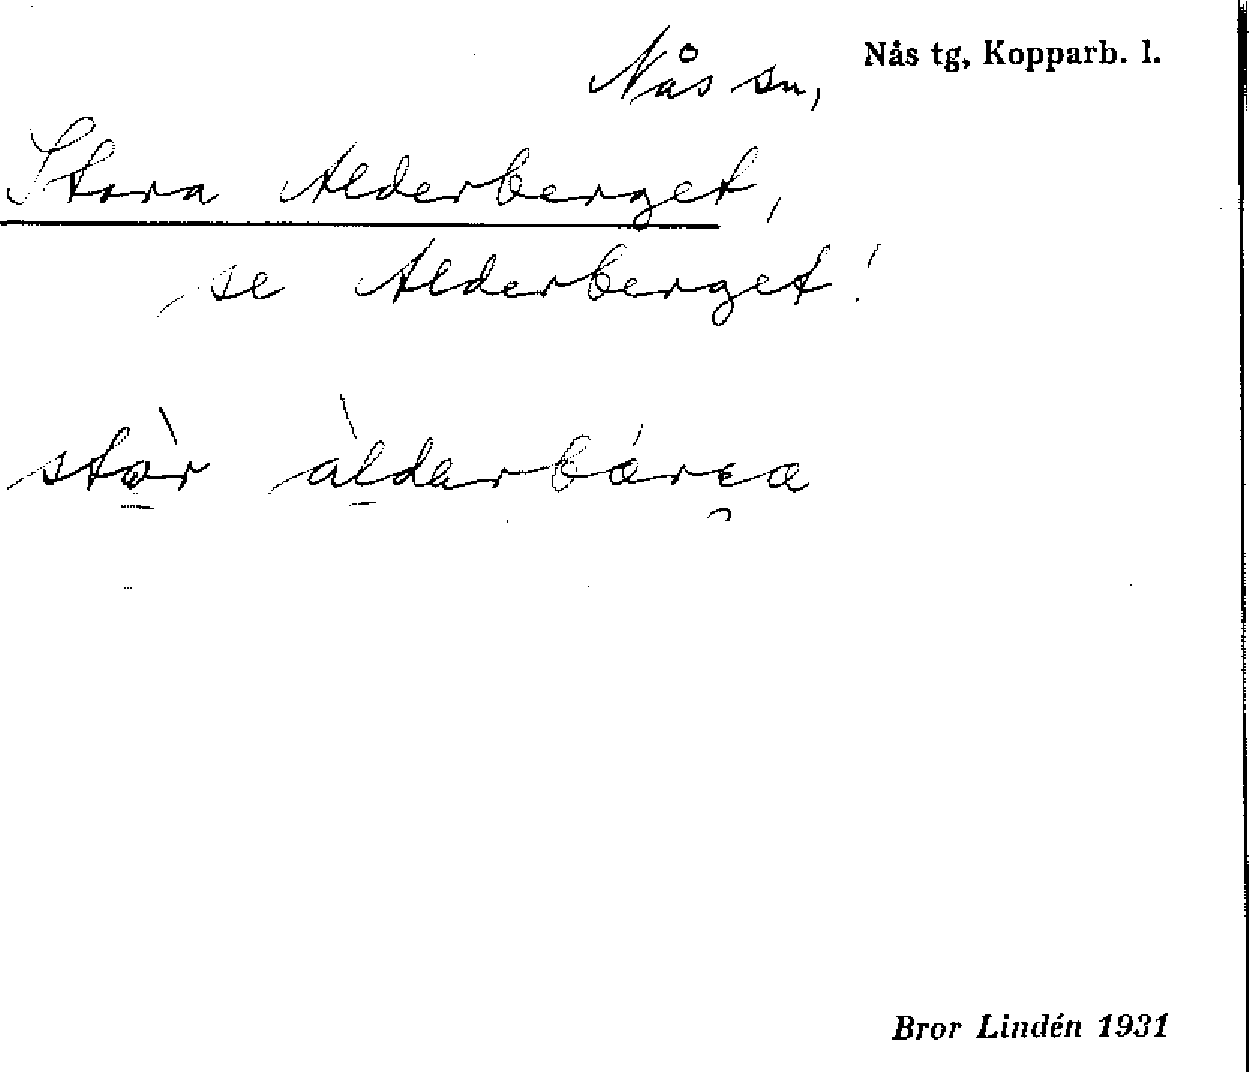 Nås sn, Nås tg, Kopparb. l.
Stora Alderberget,
se Alderberget!
stòr àlderbárɛa
Bror Lindén 1931